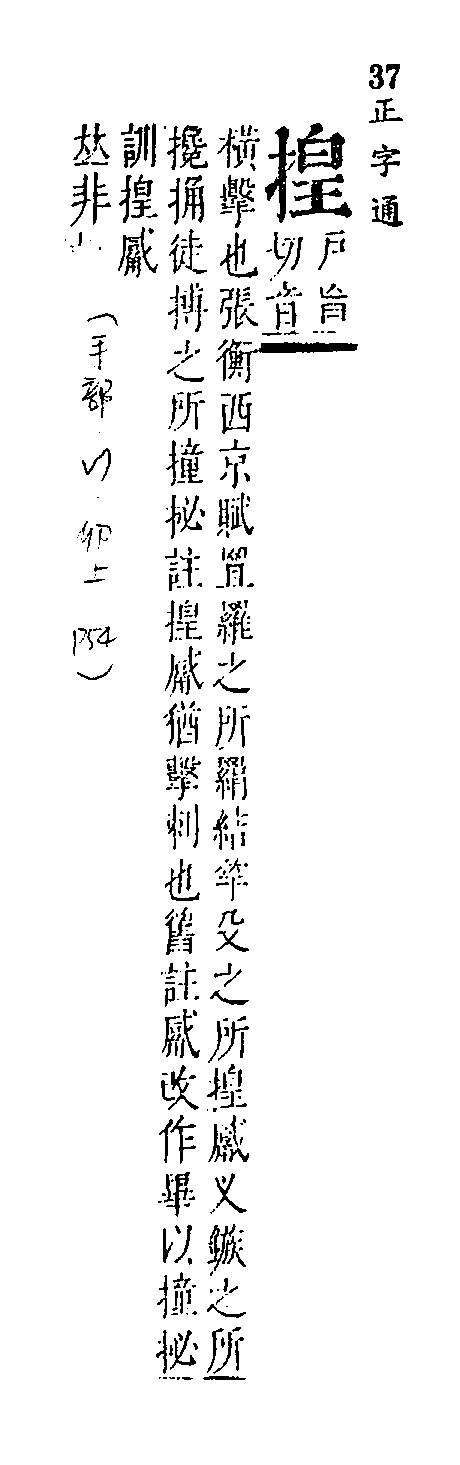 37 正字通
揘 戶盲
切音
橫擊也張衡西京賦罝羅之所羂結竿殳之所揘叉鏃之所
攙捔徒搏之所撞㧙註揘猶擊刺也舊註改作畢以撞㧙
訓揘
𠀤非
(手部.卯上 P54)